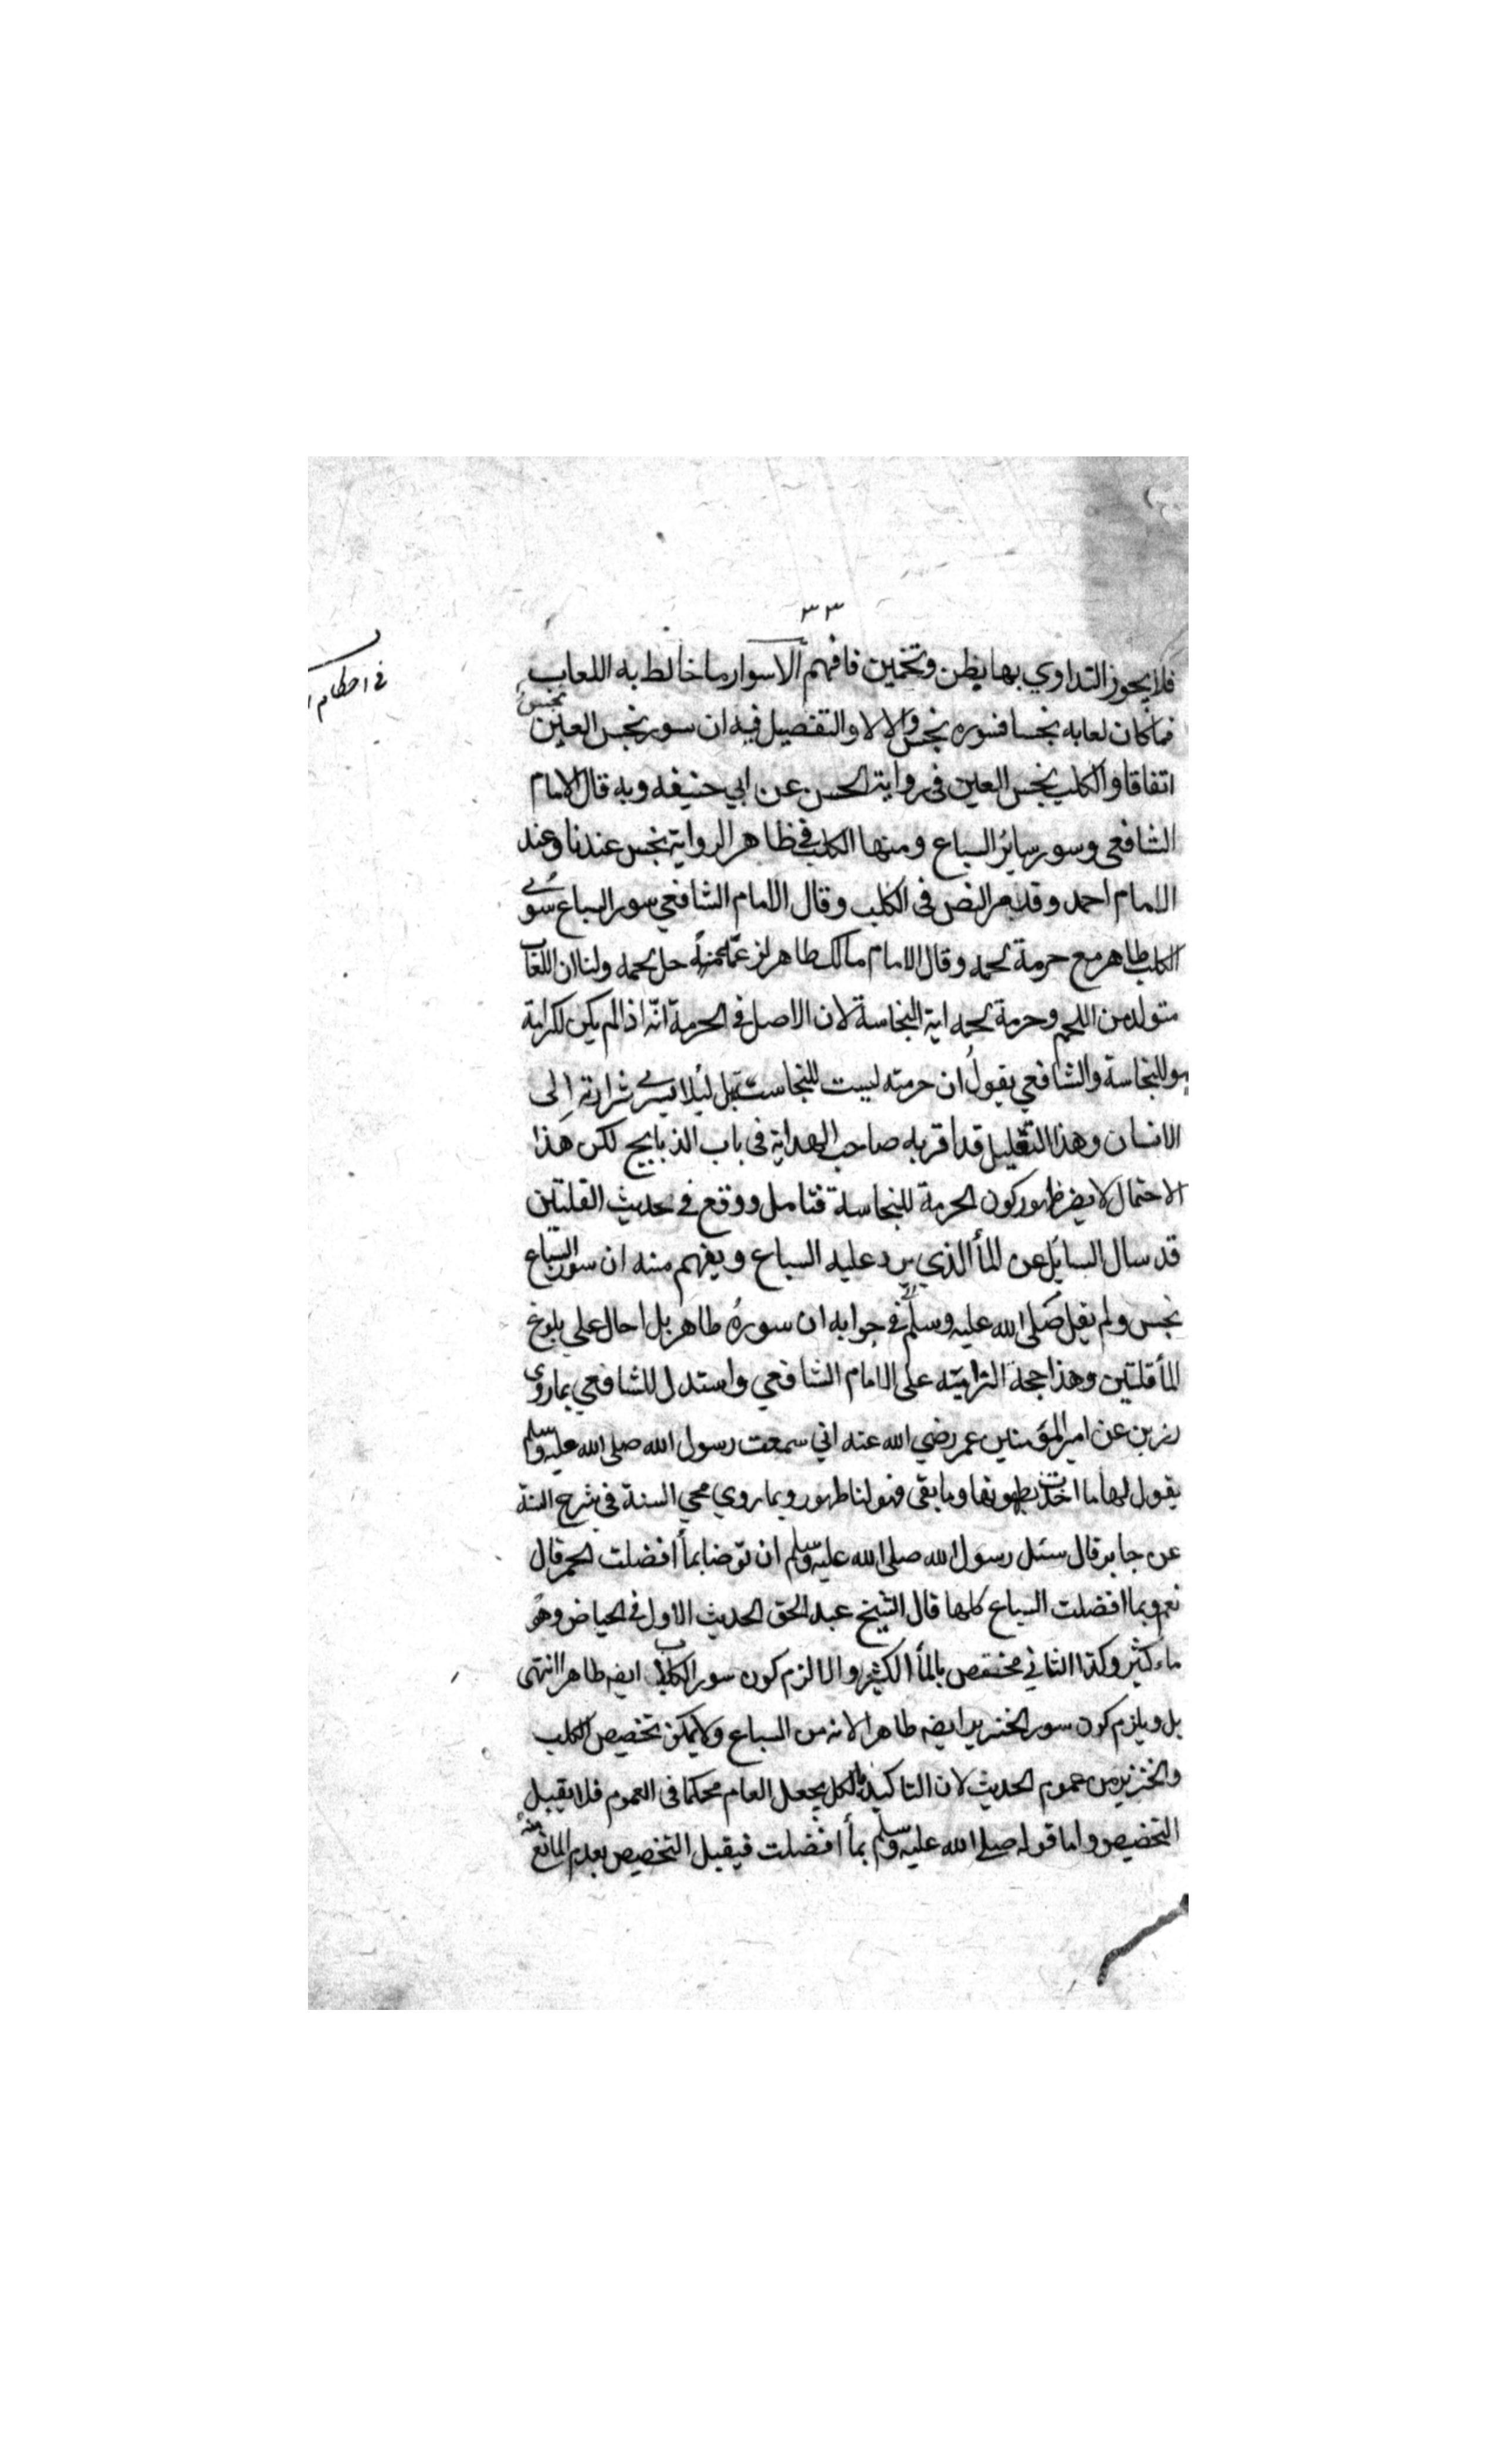 ٣٣
فلا يجوز التداوي بها بظن وتخمين فافهم الاسوار ما خالط به اللعاب
فما كان لعابه نجسا فسوره نجس والا لا والتفصيل فيه ان سور نجس العين نجس
اتفاقا والكلب نجس العين في رواية الحسن عن ابي حنيفه وبه قال الامام
الشافعي وسور سائر السباع ومنها الكلب في ظاهر الرواية نجس عندنا وعند
الامام احمد وقد مر النص في الكلب وقال الامام الشافعي سور السباع سوى
الكلب طاهر مع حرمة لحمه وقال الامام مالك طاهر حل لحمه ولنا ان اللعاب
متولد من اللحم وحرمة لحمه اية النجاسة لان الاصل في الحرمة انه اذا لم يكن لكرامة
هو للنجاسة والشافعي يقول ان حرمته ليست للنجاسة بل ليلا يسري شرارته إلى
الانسان وهذا التعليل قد اقر به صاحب الهداية في باب الذبايح لكن هذا
الاحتمال لا يضر ظهور كون الحرمة للنجاسة فتامل ووقع في حديث القلتين
قد سال السايل عن المأ الذي يرد عليه السباع ويفهم منه ان سور السباع
نجس ولم يقل صلى الله عليه وسلم في جوابه ان سوره طاهر بل احال على بلوغ
المأ قلتين وهذا حجة الزاميته على الامام الشافعي واستدل للشافعي بما روى
رزين عن امير المؤمنين عمر رضي الله عنه اني سمعت رسول الله صلى الله عليه وسلم
يقول لها ما اخذت بطونها وما بقى فهو لنا طهور وبما روي محي السنة في شرح السنة
عن جابر قال سئل رسول الله صلى الله عليه وسلم ان توضا بمأ افضلت الحمر قال
نعم وبما افضلت السباع كلها قال الشيخ عبد الحق الحديث الاول في الحياض وهو
ماء كثير وكذا الثاني مختص بالمأ الكثير والا لزم كون سور الكلب ايضه طاهرا انتهى
بل ويلزم كون سور الخنزير ايضه طاهرا لانه من السباع ولا يمكن تخصيص الكلب
والخنزير من عموم الحديث لان التاكيد بالكل يجعل العام محكما في العموم فلا يقبل
التخصيص واما قوله صلى الله عليه وسلم بمأ افضلت فيقبل التخصيص بعدم المانع منه
في احكام